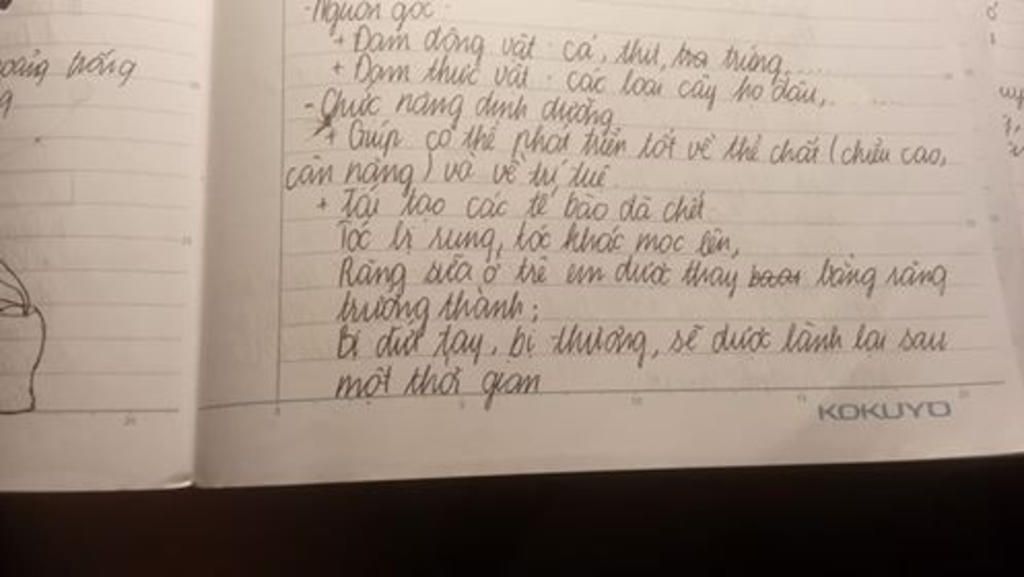 oảng trống
g
- Nguồn gốc:
+ Đạm động vật: cá, thịt, trứng,......
+ Đạm thực vật: các loại cây họ đậu,......
- Chức năng dinh dưỡng
+ Giúp cơ thể phát triển tốt về thể chất (chiều cao,
cân nặng) và về trí tuệ.
+ Tái tạo các tế bào đã chết
Tóc bị rụng, tóc khác mọc lên,
Răng sữa ở trẻ em được thay bằng răng
trưởng thành;
Bị đứt tay, bị thương, sẽ được lành lại sau
một thời gian
KOKUYO